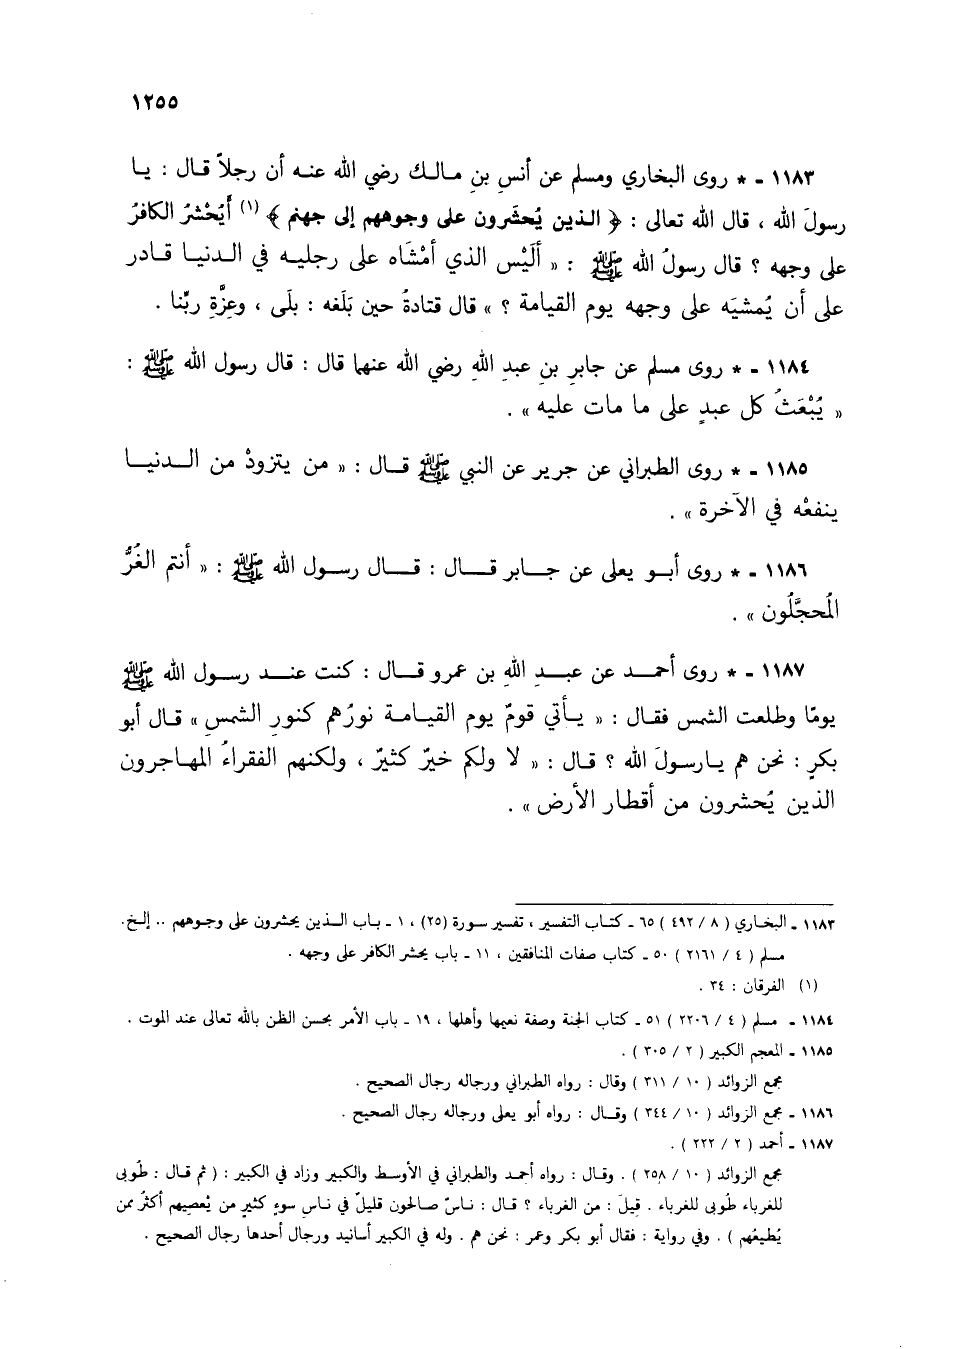 ١٢٥٥
١١٨٣ ـ * روى البخاري ومسلم عن أنسِ بنِ مـالـك رضي الله عنـه أن رجلاً قـال : يـا
رسولَ الله ، قال الله تعالى : ﴿ الـذين يُحشَرون على وجوههم إلى جهنم ﴾ (١) أَيُحْشرُ الكافرُ
على وجهه ؟ قال رسولُ الله ﷺ : « أَلَيْس الذي أمْشَاه على رجليـه في الـدنيـا قـادر
على أن يُمشيَه على وجهه يوم القيامة ؟ » قال قتادةُ حين بَلَغه : بلَى ، وعِزَّةِ ربِّنا .
١١٨٤ ـ * روى مسلم عن جابرِ بنِ عبدِ اللهِ رضي الله عنهما قال : قال رسول الله ﷺ :
« يُبْعَثُ كل عبدٍ على ما مات عليه » .
١١٨٥ ـ * روى الطبراني عن جرير عن النبي ﷺ قـال : « من يتزودْ من الـدنيـا
ينفعْه في الآخرة » .
١١٨٦ ـ * روى أبـو يعلى عن جـابر قـال : قـال رسـول الله ﷺ : « أنتم الغُرُّ
المُحجَّلُون » .
١١٨٧ ـ * روى أحمـد عن عبـدِ اللهِ بن عمرو قـال : كنت عنـد رسـول الله ﷺ
يومًا وطلعت الشمس فقال : « يـأتي قومٌ يوم القيامـة نورُهم كنورِ الشمسِ » قـال أبو
بكرٍ : نحن هم يـارسولَ الله ؟ قـال : « لا ولكم خيرٌ كثيرٌ ، ولكنهم الفقراءُ المهـاجرون
الذين يُحشرون من أقطار الأرض » .
١١٨٣ ـ البخاري ( ٨ / ٤٩٢ ) ٦٥ ـ كتـاب التفسير ، تفسير سورة (٢٥) ، ١ ـ بـاب الـذين يحشرون على وجـوههم .. إلـخ.
مسلم ( ٤ / ٢١٦١ ) ٥٠ ـ كتاب صفات المنافقين ، ١١ ـ باب يحشر الكافر على وجهه .
(١) الفرقان : ٣٤ .
١١٨٤ ـ مسلم ( ٤ / ٢٢٠٦ ) ٥١ ـ كتاب الجنة وصفة نعيمها وأهلها ، ١٩ ـ باب الأمر بحسن الظن بالله تعالى عند الموت .
١١٨٥ ـ المعجم الكبير ( ٢ / ٣٠٥ ) .
مجمع الزوائد ( ١٠ / ٣١١ ) وقال : رواه الطبراني ورجاله رجال الصحيح .
١١٨٦ ـ مجمع الزوائد ( ١٠ / ٣٤٤ ) وقـال : رواه أبو يعلى ورجاله رجال الصحيح .
١١٨٧ ـ أحمد ( ٢ / ٢٢٢ ) .
مجمع الزوائد ( ١٠ / ٢٥٨ ) . وقـال : رواه أحمد والطبراني في الأوسط والكبير وزاد في الكبير : ( ثم قـال : طُوبى
للغرباء طُوبى للغرباء . قيلَ : من الغرباء ؟ قـال : نـاسٌ صـالحون قليلٌ في ناسِ سوءٍ كثيرٍ من يَعصيهم أكثرُ ممن
يُطيعُهم ) . وفي رواية : فقال أبو بكر وعمر : نحن هم . وله في الكبير أسانيد ورجال أحدها رجال الصحيح .